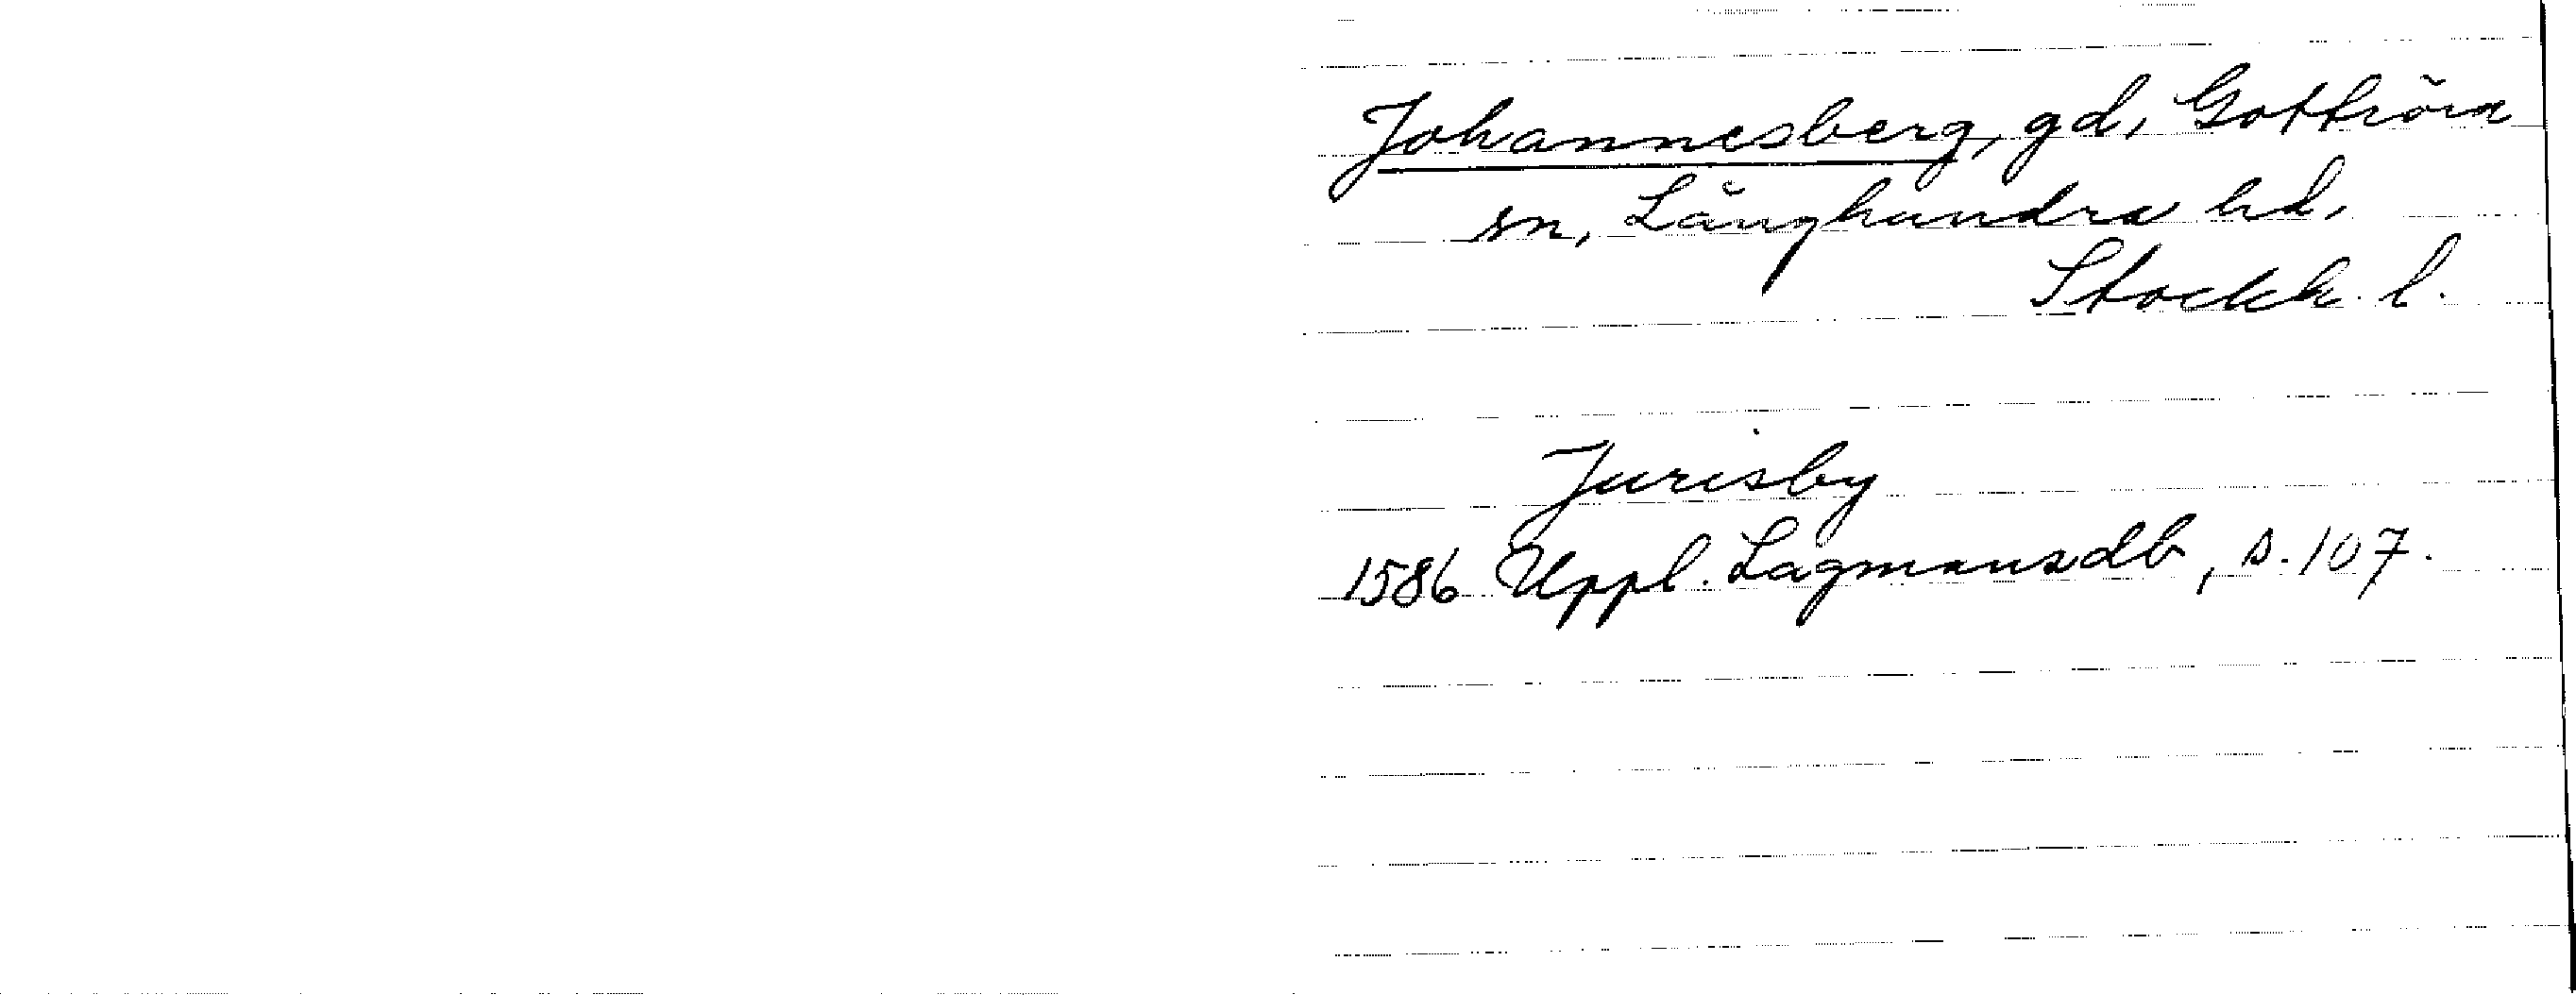 Johannesberg, gd, Gottröra
sn, Långhundra hd,
Stockh. l.
Jurisby
1586 Uppl. Lagmansdb, s. 107.